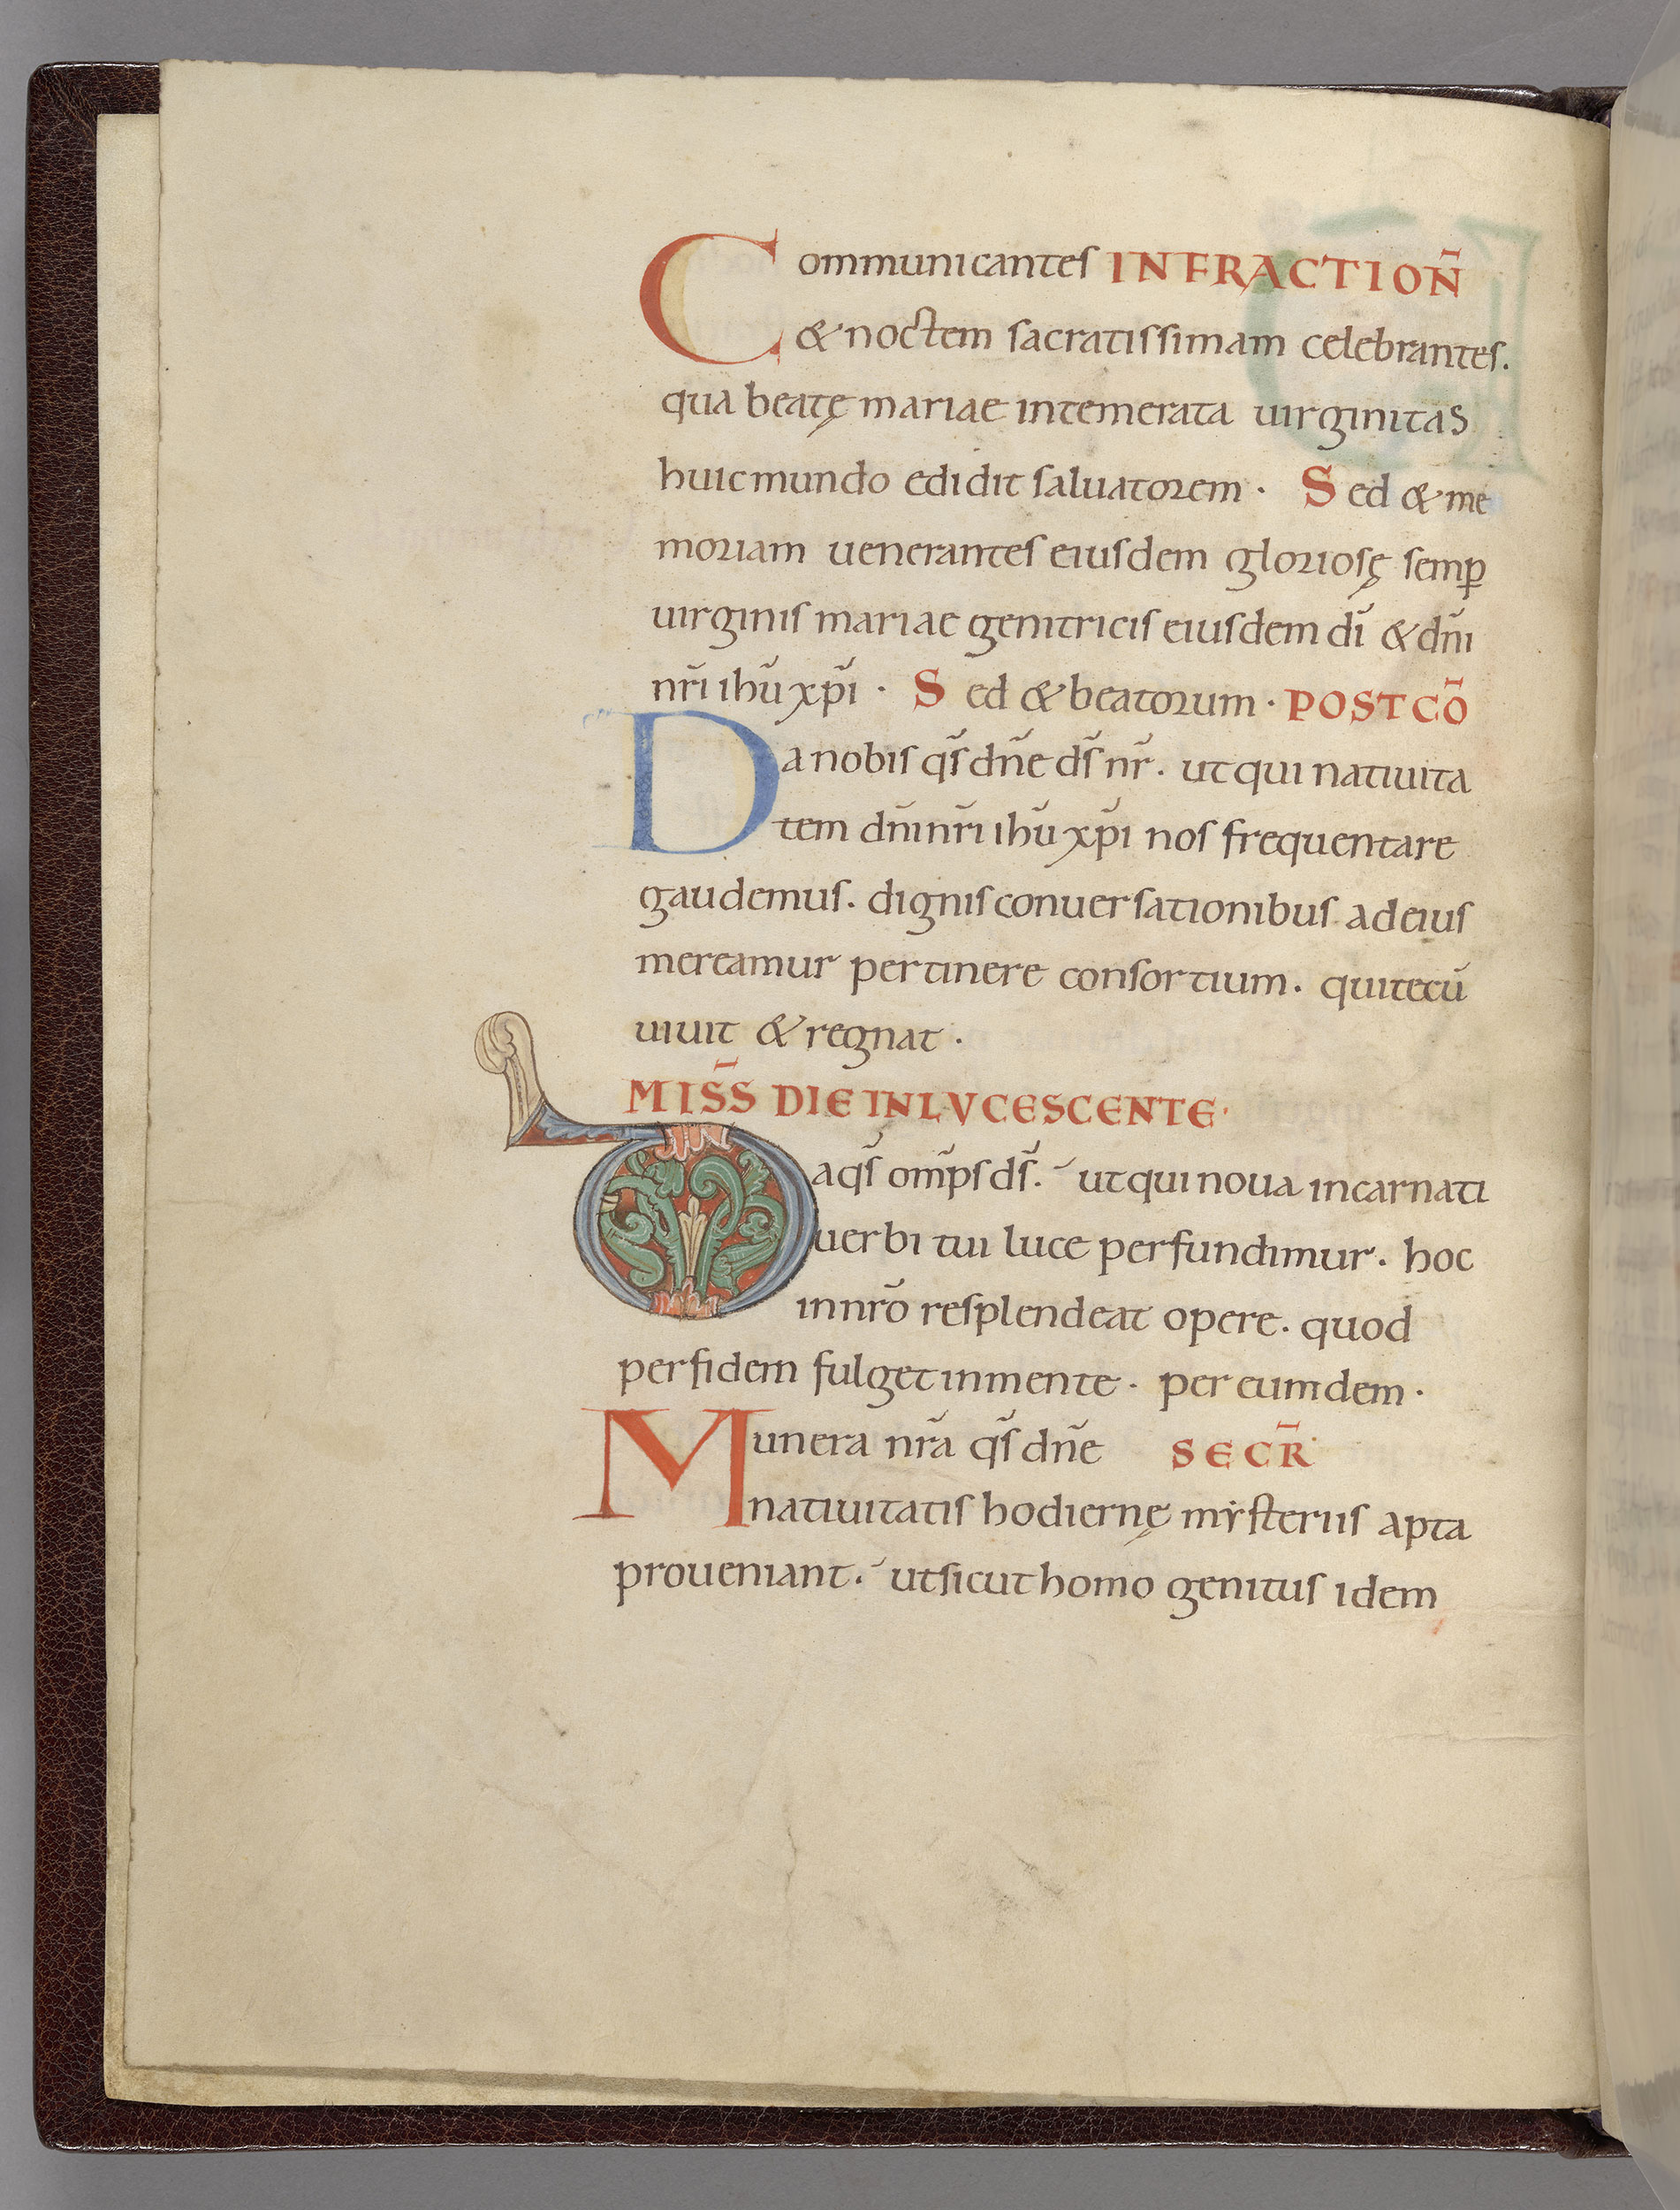 Communicantes INFRACTIOÑ
& noctem sacratissimam celebrantes.
qua beatę mariae intemerata uirginitas
huic mundo edidit saluatorem · Sed & me
moriam uenerantes eiusdem gloriosę semꝑ
uirginis mariae genitricis eiusdem dī & dn̄i
nr̄i ihū xp̄i · Sed & beatorum · POST CŌ
Da nobis qs̄ dn̄e ds̄ nr̄ · ut qui natiuita
tem dn̄i nr̄i ihū xp̄i nos frequentare
gaudemus . dignis conuersationibus ad eius
mereamur pertinere consortium . qui tecū
uiuit & regnat .
MIS̄S DIE INLVCESCENTE ·
Da qs̄ om̄ps ds̄ . ut qui noua incarnati
uerbi tui luce perfundimur . hoc
in nr̄o resplendeat opere . quod
per fidem fulget in mente . per eumdem .
Munera nr̄a qs̄ dn̄e SECR̄
natiuitatis hodiernę mẏsteriis apta
proueniant . ut sicut homo genitus idem